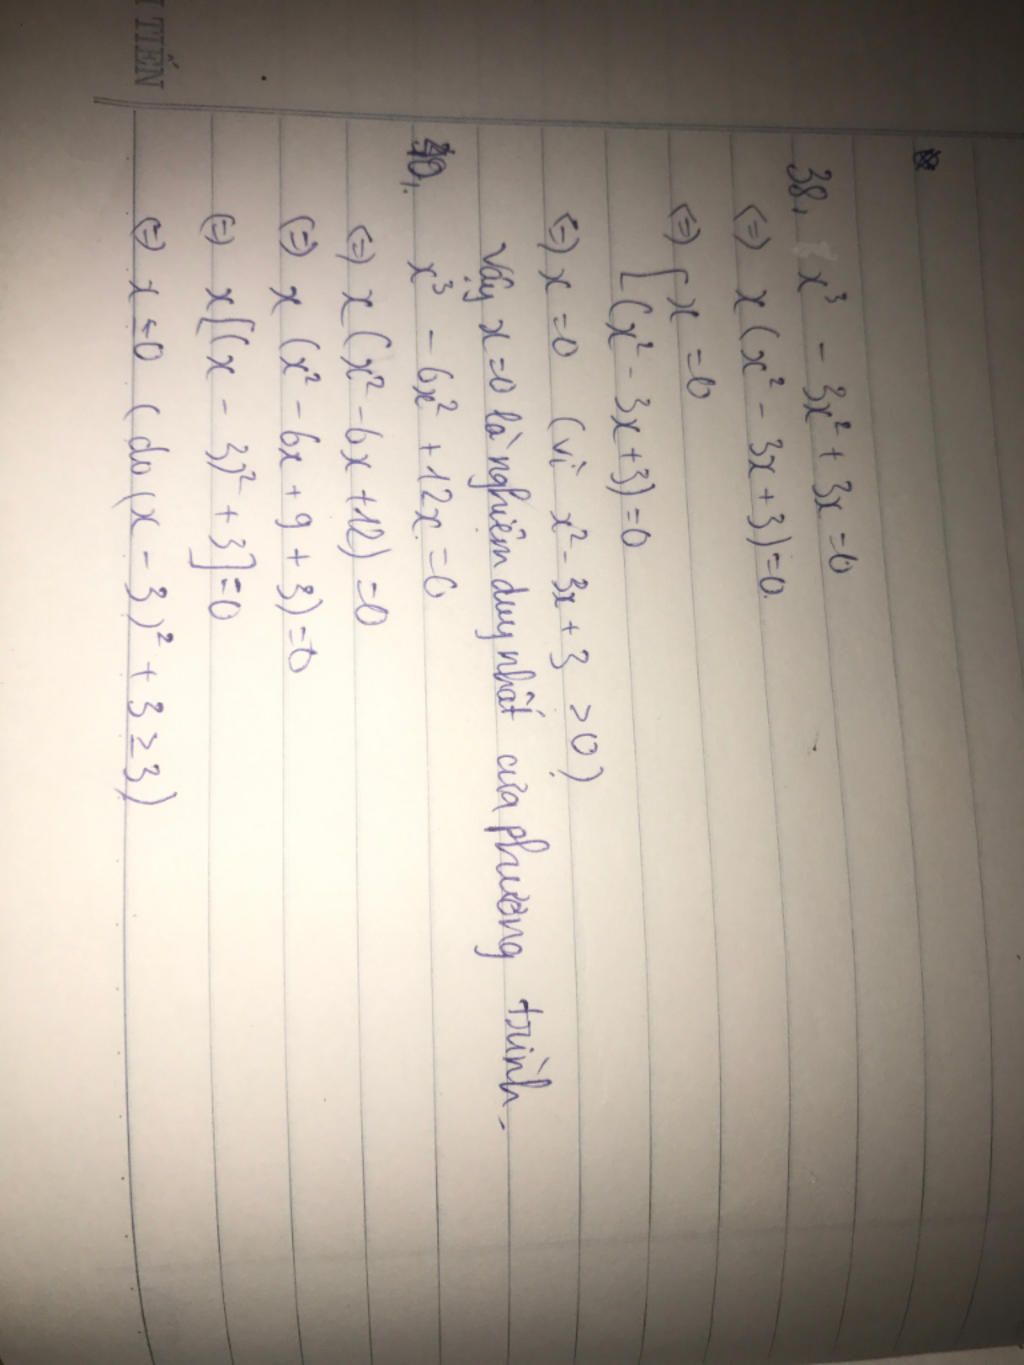 TIẾN
38, x³ - 3x² + 3x = 0
(=) x (x² - 3x + 3) = 0.
(=) [ x = 0
[ (x² - 3x + 3) = 0
(=) x = 0 (vì x² - 3x + 3 > 0)
Vậy x = 0 là nghiệm duy nhất của phương trình.
40, x³ - 6x² + 12x = 0
(=) x (x² - 6x + 12) = 0
(=) x (x² - 6x + 9 + 3) = 0
(=) x [(x - 3)² + 3] = 0
(=) x = 0 (do (x - 3)² + 3 ≥ 3)